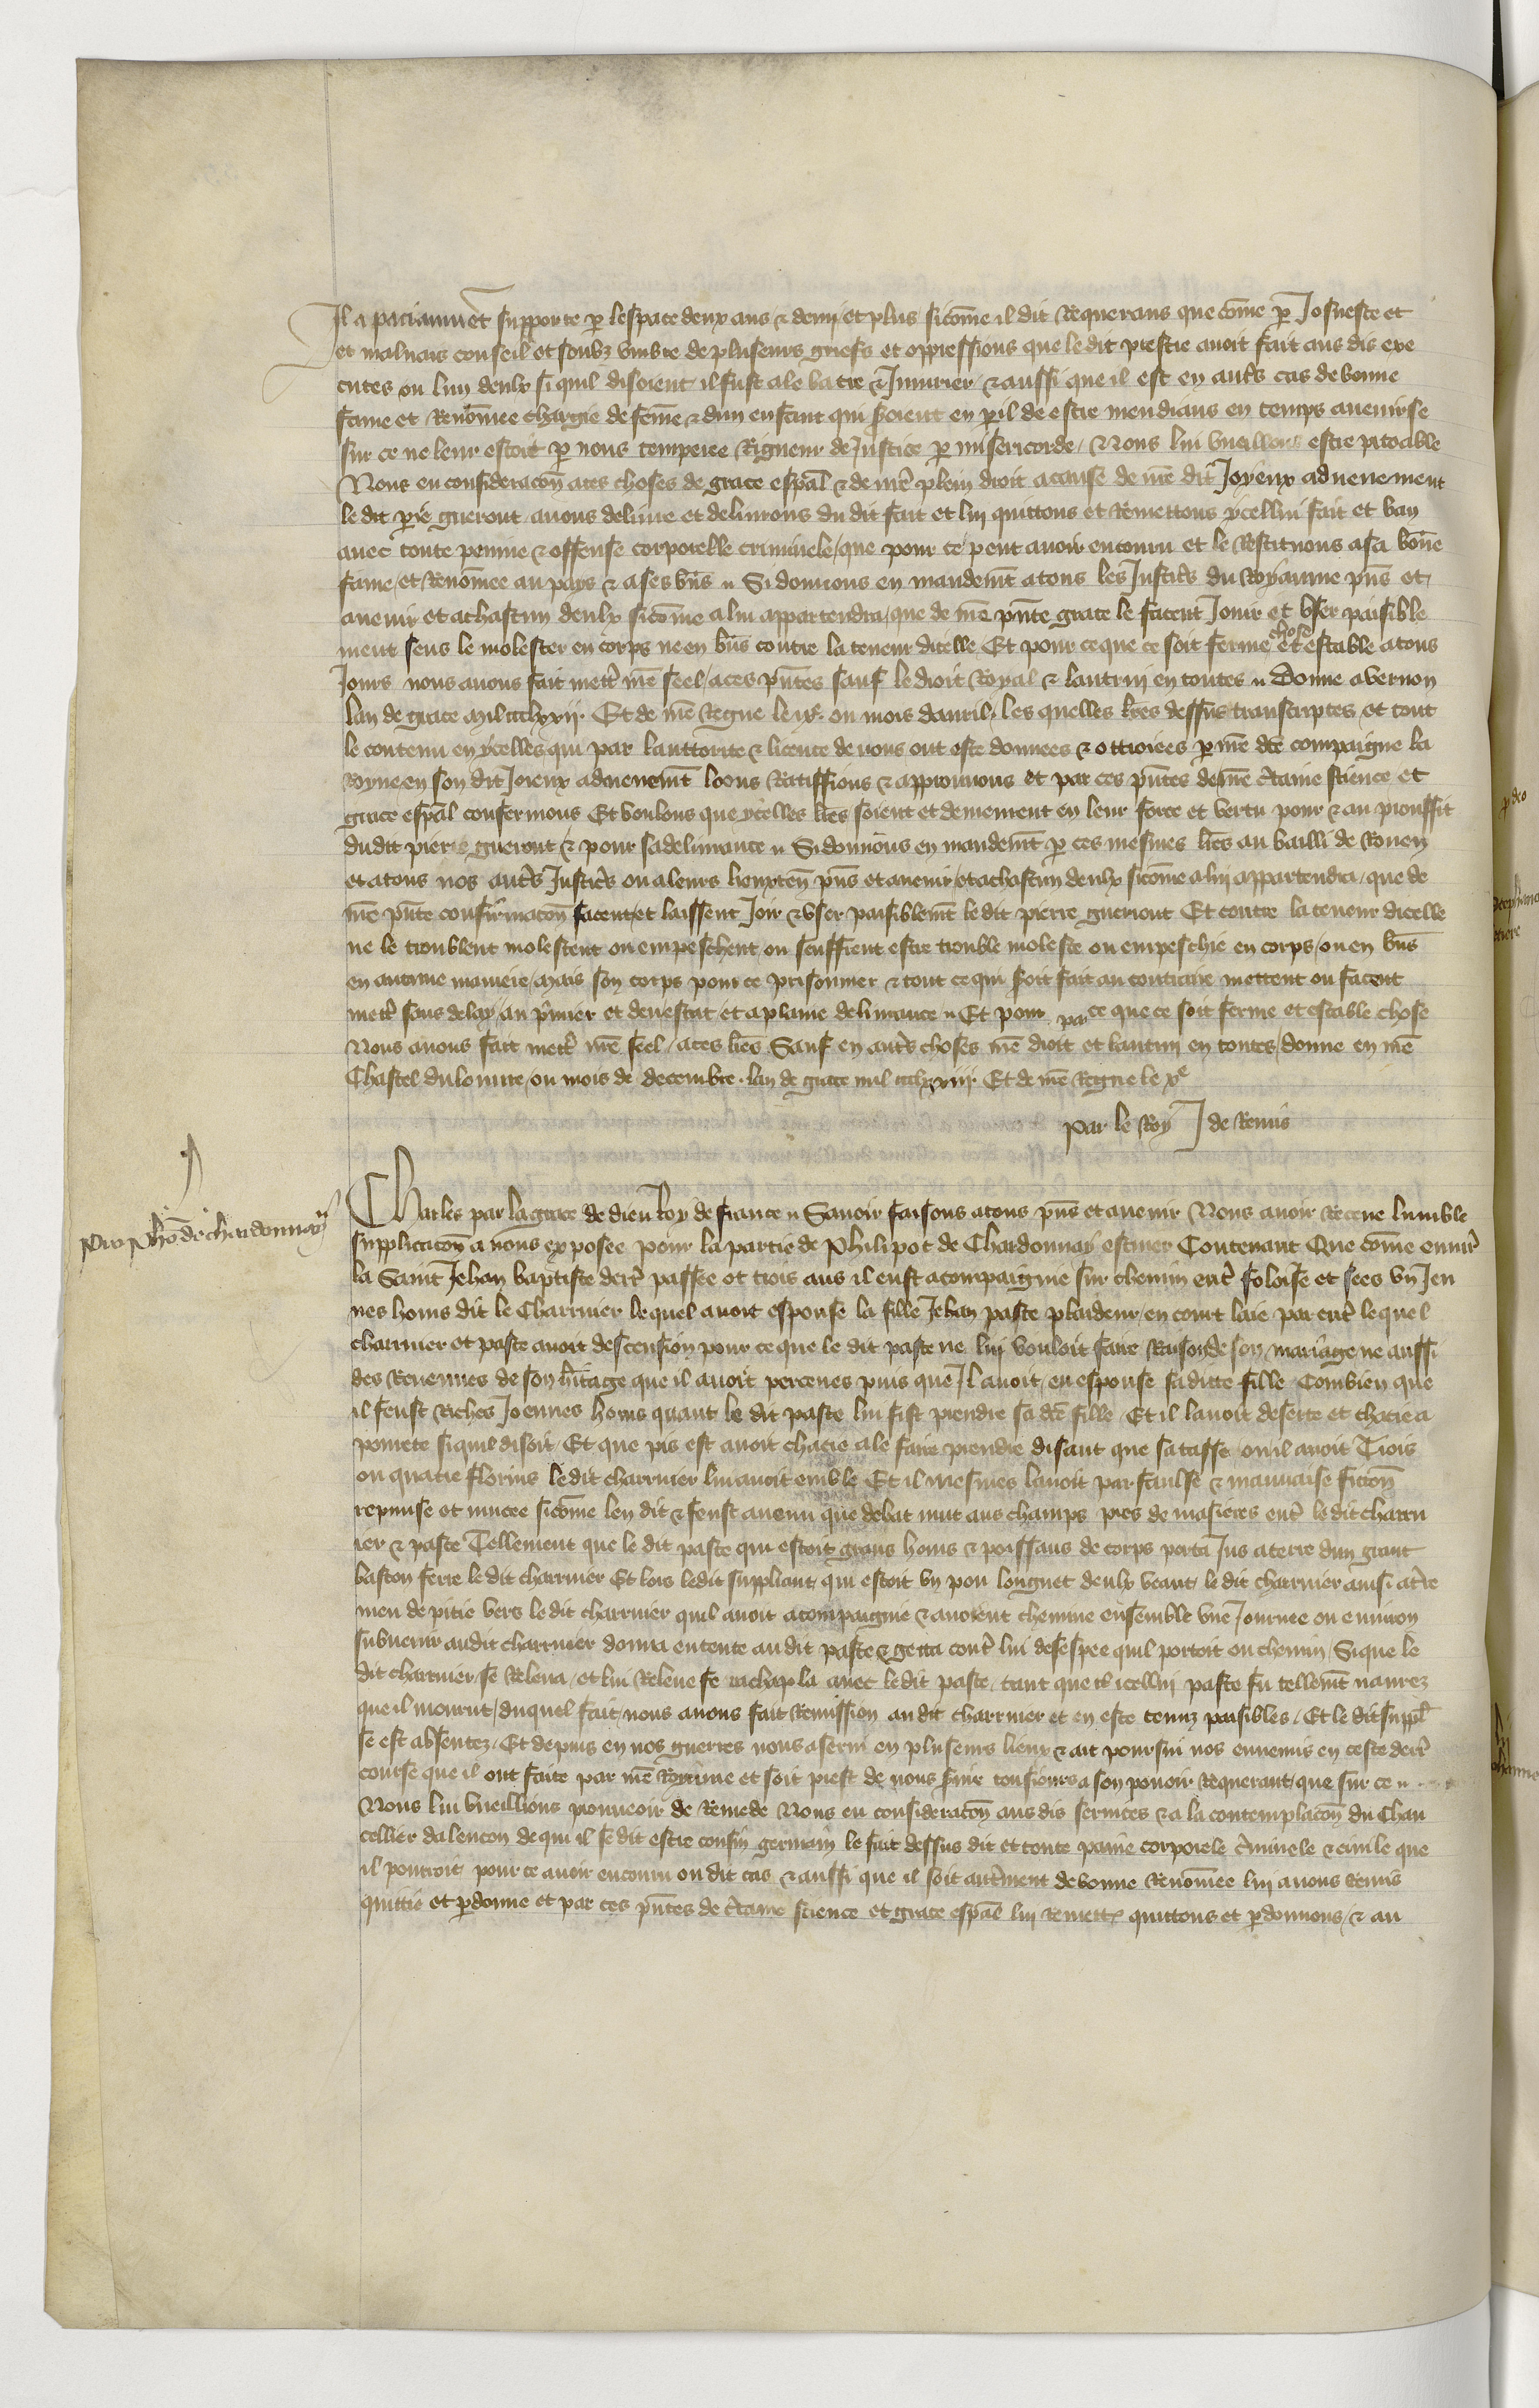 Il a paciaument supporte p lespace deux ans & demi et plus sicome il dit Requerans que come p Josneste et
et malvais conseil et soubz umbre de pluseurs griefs et oppressions que le dit prestre avoit fait aus dis exe
cutes ou lun deulx si quil disoient il fust ale batre & Jniurier & aussi que il est en autrs cas de bonne
fame et Renomee chargie de feme & dun enfant qui seroient en pil de estre mendians en temps avenir se
sur ce ne leur estoit p nous temperee Rigueur de Justice p misericorde & Nous lui vueillons estre pitoable
Nous en consideracon a ces choses de grace espal & de nre plein droit a cause de nre dit Joyeux advenement
le dit pre guerout avons delivre et delivrons du dit fait et lui quittons et Remettons ycellui fait et ban
avec toute peinne & offense corporelle criminele que pour ce peut avoir encouru et le Restituons a sa bone
fame et Renomee au pays & a ses bns Si donnons en mandemt a tous les Justicrs du Royaume pns et
avenir et a chascun deulx sicome a lui appartendra que de nre pnte grace le facent Jouir et user paisible
ment sens le molester en corps ne en bns contre la teneur dicelle Et pour ce que ce soit ferme chose et estable a tous
Jours nous avons fait mettr nre seel a ces pntes sauf le droit Royal & lautrui en toutes Donne a vernon
lan de grace mil ccclxxij. Et de nre Regne le ixe. ou mois davril. Les quelles lres dessus transcriptes et tout
le contenu en ycelles qui par lauttorite & licence de nous ont este donnees & ottroiees p nre dce compaigne la
Royne en son dit Joieux advenemt loons Ratiffions & approuvons et par ces pntes de nre ctaine science et
grace espal confermons Et voulons que ycelles lres soient et demeurent en leur force et vertu pour & au prouffit
dudit pierre guerout & pour sa delivrance Si donnons en mandemt p ces mesmes lres au bailli de Rouen
et a tous nos autrs Justicrs ou a leurs lieuxten pns et avenir et a chascun deulx sicome a lui appartendra que de
nre pnte confirmacon facent et laissent Joir & user paisiblemt le dit pierre guerout Et contre la teneur dicelle
ne le troublent molestent ou empeschent ou seuffrent estre trouble moleste ou empeschie en corps ou en bns
en aucune maniere mais son corps pour ce prisonnier & tout ce qui seroit fait au contraire mettent ou facent
mettr sans delay au pmier et deu estat et a plaine delivrance Et pour par ce que ce soit ferme et estable chose
Nous avons fait mettr nre seel a ces lres Sauf en autrs choses nre droit et lautrui en toutes donne en nre
Chastel du louvre ou mois de decembre. lan de grace mil ccclxxiij. Et de nre Regne le xe
Par le Roy J de Remis
Pro Pho de chardonnay
Charles par la grace de dieu Roy de france Savoir faisons a tous pns et avenir Nous avoir Receue lumble
supplicacon a nous exposee pour la partie de Philipot de Chardonnay escuier Contenant Que come environ
la Saint Jehan baptiste derr passee ot trois ans il eust acompaignie sur chemin entr faloise et sees un Jeu
nes homs dit le Charruier lequel avoit espouse la fille Jehan paste plaideur en court laie par entr lequel
charruier et paste avoit descension pour ce que le dit paste ne lui vouloit faire Raison de son mariage ne aussi
des Revenues de son hritage que il avoit perceues puis que Jl avoit eu espouse sa dicte fille Combien que
il feust Riches Joennes homs quant le dit paste lui fist prendre sa dce fille Et il lavoit deserte et chacie a
povrete si quil disoit Et que pis est avoit chacie a le faire prendre disant que sa tasse ou il avoit Trois
ou quatre florins le dit charruier lui avoit emble Et il mesmes lavoit par faulse & mauvaise ficcon
repunse et mucee sicome len dit & feust avenu que debat mut aus champs pres de masieres entr le dit charru
ier & paste Tellement que le dit paste qui estoit grans homs & poissans de corps porta jus a terre dun grant
baston ferre le dit charruier Et lors ledit suppliant qui estoit un pou longnet deulx veant le dit charruier ainsi atrre
meu de pitie vers le dit charruier quil avoit acompaignie & avoient chemine ensemble une Journee ou environ
subvenir audit charruier donna entente au dit paste & getta contr lui de sespee quil portoit ou chemin Si que le
dit charruier se Releva et lui Releve se rachapla avec le dit paste tant que icellui paste fu tellemt navrez
que il mourut duquel fait nous avons fait Remission au dit charruier et en este tenuz paisibles. Et le dit suppl
se est absentez. Et depuis en nos guerres nous a servi en pluseurs lieux & ait poursui nos ennemis en ceste derr
course que il ont faite par nre Royaume et soit prest de nous srvir tousiours a son povoir Requerant que sur ce
Nous lui vueillions pourveoir de Remede Nous en consideracon aus dis services & a la contemplacon du Chan
cellier dalencon de qui il se dit estre cousin germain le fait dessus dit et toute paine corporele criminele & civile que
il pourroit pour ce avoir encouru ou dit cas & aussi que il soit autrment de bonne Renomee lui avons Remis
quittie et pdonne et par ces pntes de ctaine science et grace espal lui Remettons quittons et pdonnons & au